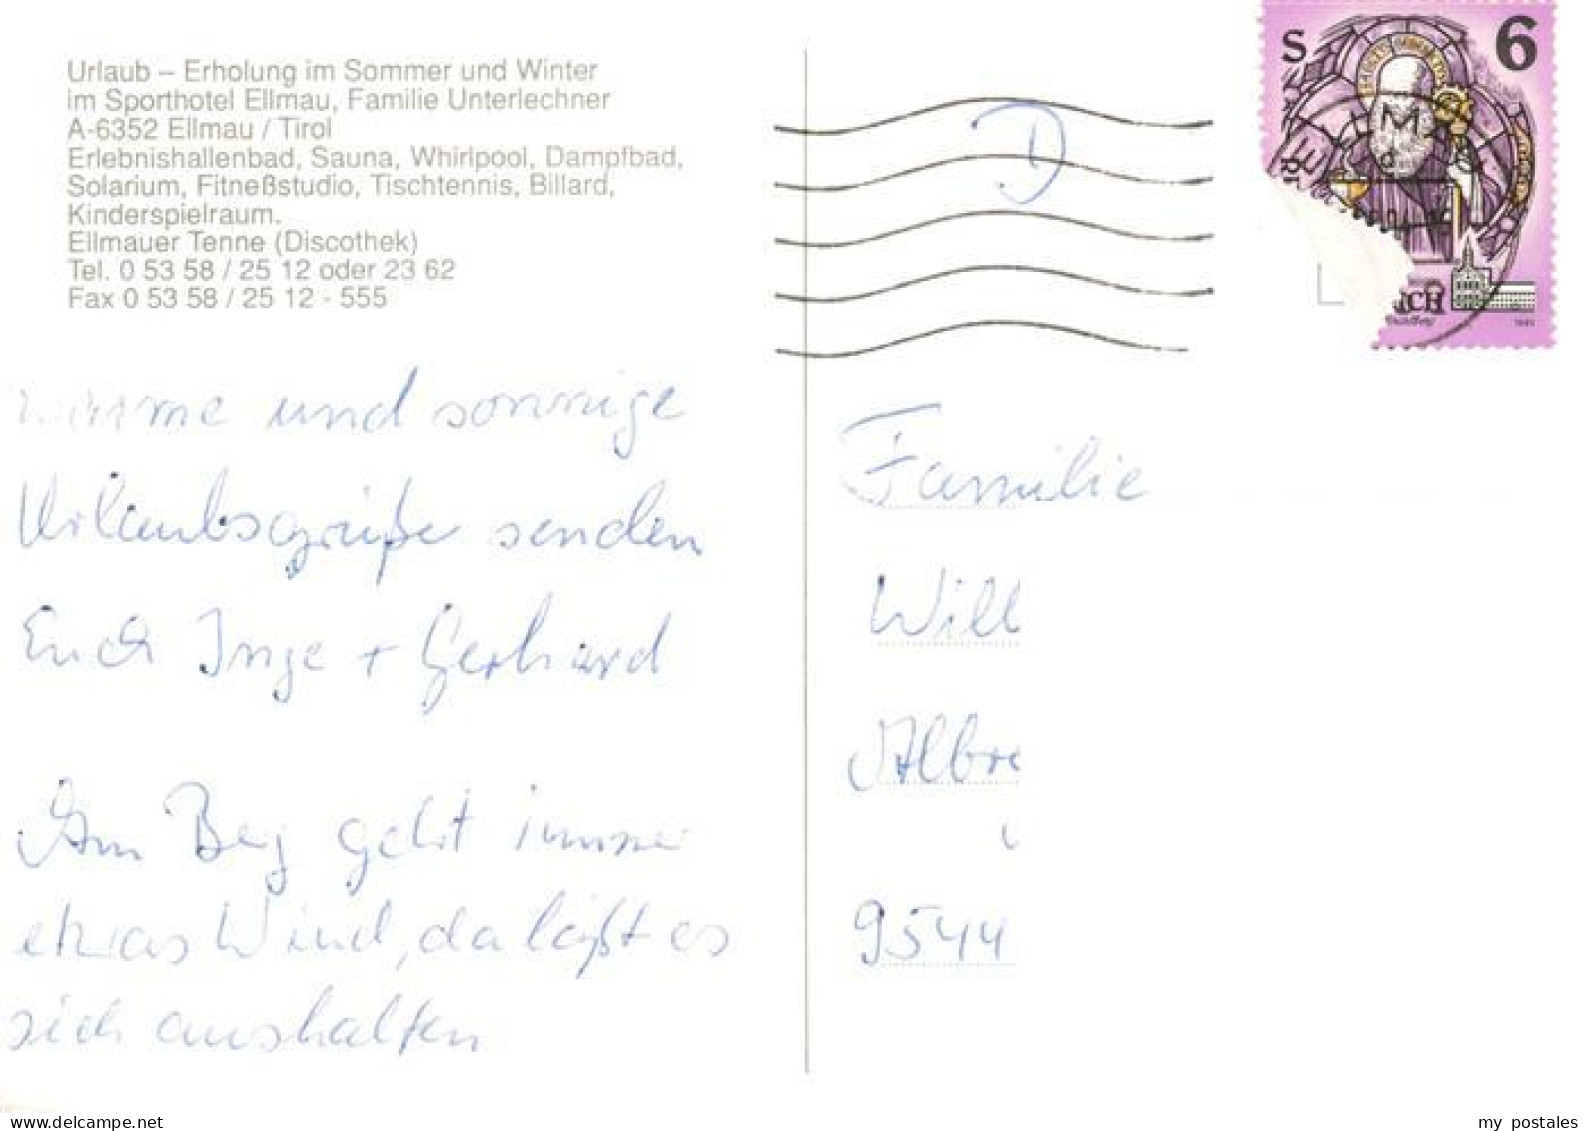 Urlaub – Erholung im Sommer und Winter
im Sporthotel Ellmau, Familie Unterlechner
A-6352 Ellmau / Tirol
Erlebnishallenbad, Sauna, Whirlpool, Dampfbad,
Solarium, Fitneßstudio, Tischtennis, Billard,
Kinderspielraum.
Ellmauer Tenne (Discothek)
Tel. 0 53 58 / 25 12 oder 23 62
Fax 0 53 58 / 25 12 - 555
warme und sonnige
Urlaubsgrüße senden
Euch Inge + Gerhard
Am Berg geht immer
etwas Wind, da läßt es
sich aushalten
D
S 6
Familie
Will
Albre
9544
delcampe.net
my_postales